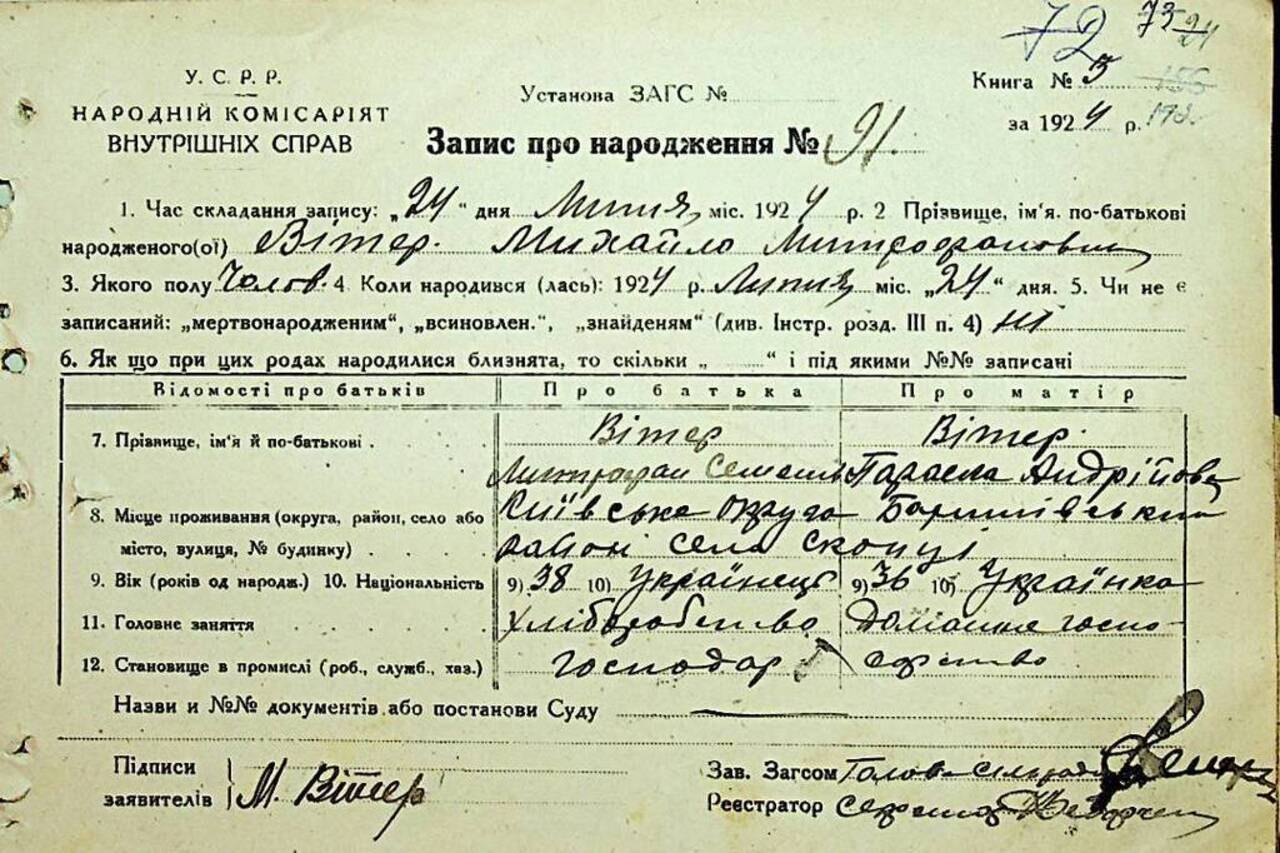 72 73 24
У. С. Р. Р.
НАРОДНІЙ КОМІСАРІЯТ
ВНУТРІШНІХ СПРАВ
Установа ЗАГС №
Книга № 3 156
за 1924 р. 193
Запис про народження № 91.
1. Час складання запису: „24“ дня Липня міс. 1924 р. 2 Прізвище, ім'я. по-батькові
народженого(ої) Вітер. Михайло Митрофанович
3. Якого полу Чолов. 4. Коли народився (лась): 1924 р. Липня міс. „24“ дня. 5. Чи не є
записаний: „мертвонародженим“, „всиновлен.“, „знайденям“ (див. Інстр. розд. III п. 4) ні
6. Як що при цих родах народилися близнята, то скільки „ “ і під якими №№ записані
Відомості про батьків Про батька Про матір
7. Прізвище, ім'я й по-батькові . Вітер Вітер.
Митрофан Семенів Параска Андрійова
8. Місце проживання (округа, район, село або Київська округа Баришівський
місто, вулиця, № будинку) . . . . район село Скопці
9. Вік (років од народж.) 10. Національність 9) 38 10) Українець 9) 36 10) Українка
11. Головне заняття . . . . . . Хліборобство Домашнє госпо-
12. Становище в промислі (роб., служб., хаз.) господар дарство
Назви и №№ документів або постанови Суду
Підписи
заявителів М. Вітер
Зав. Загсом Голова сільради
Реєстратор Секретар